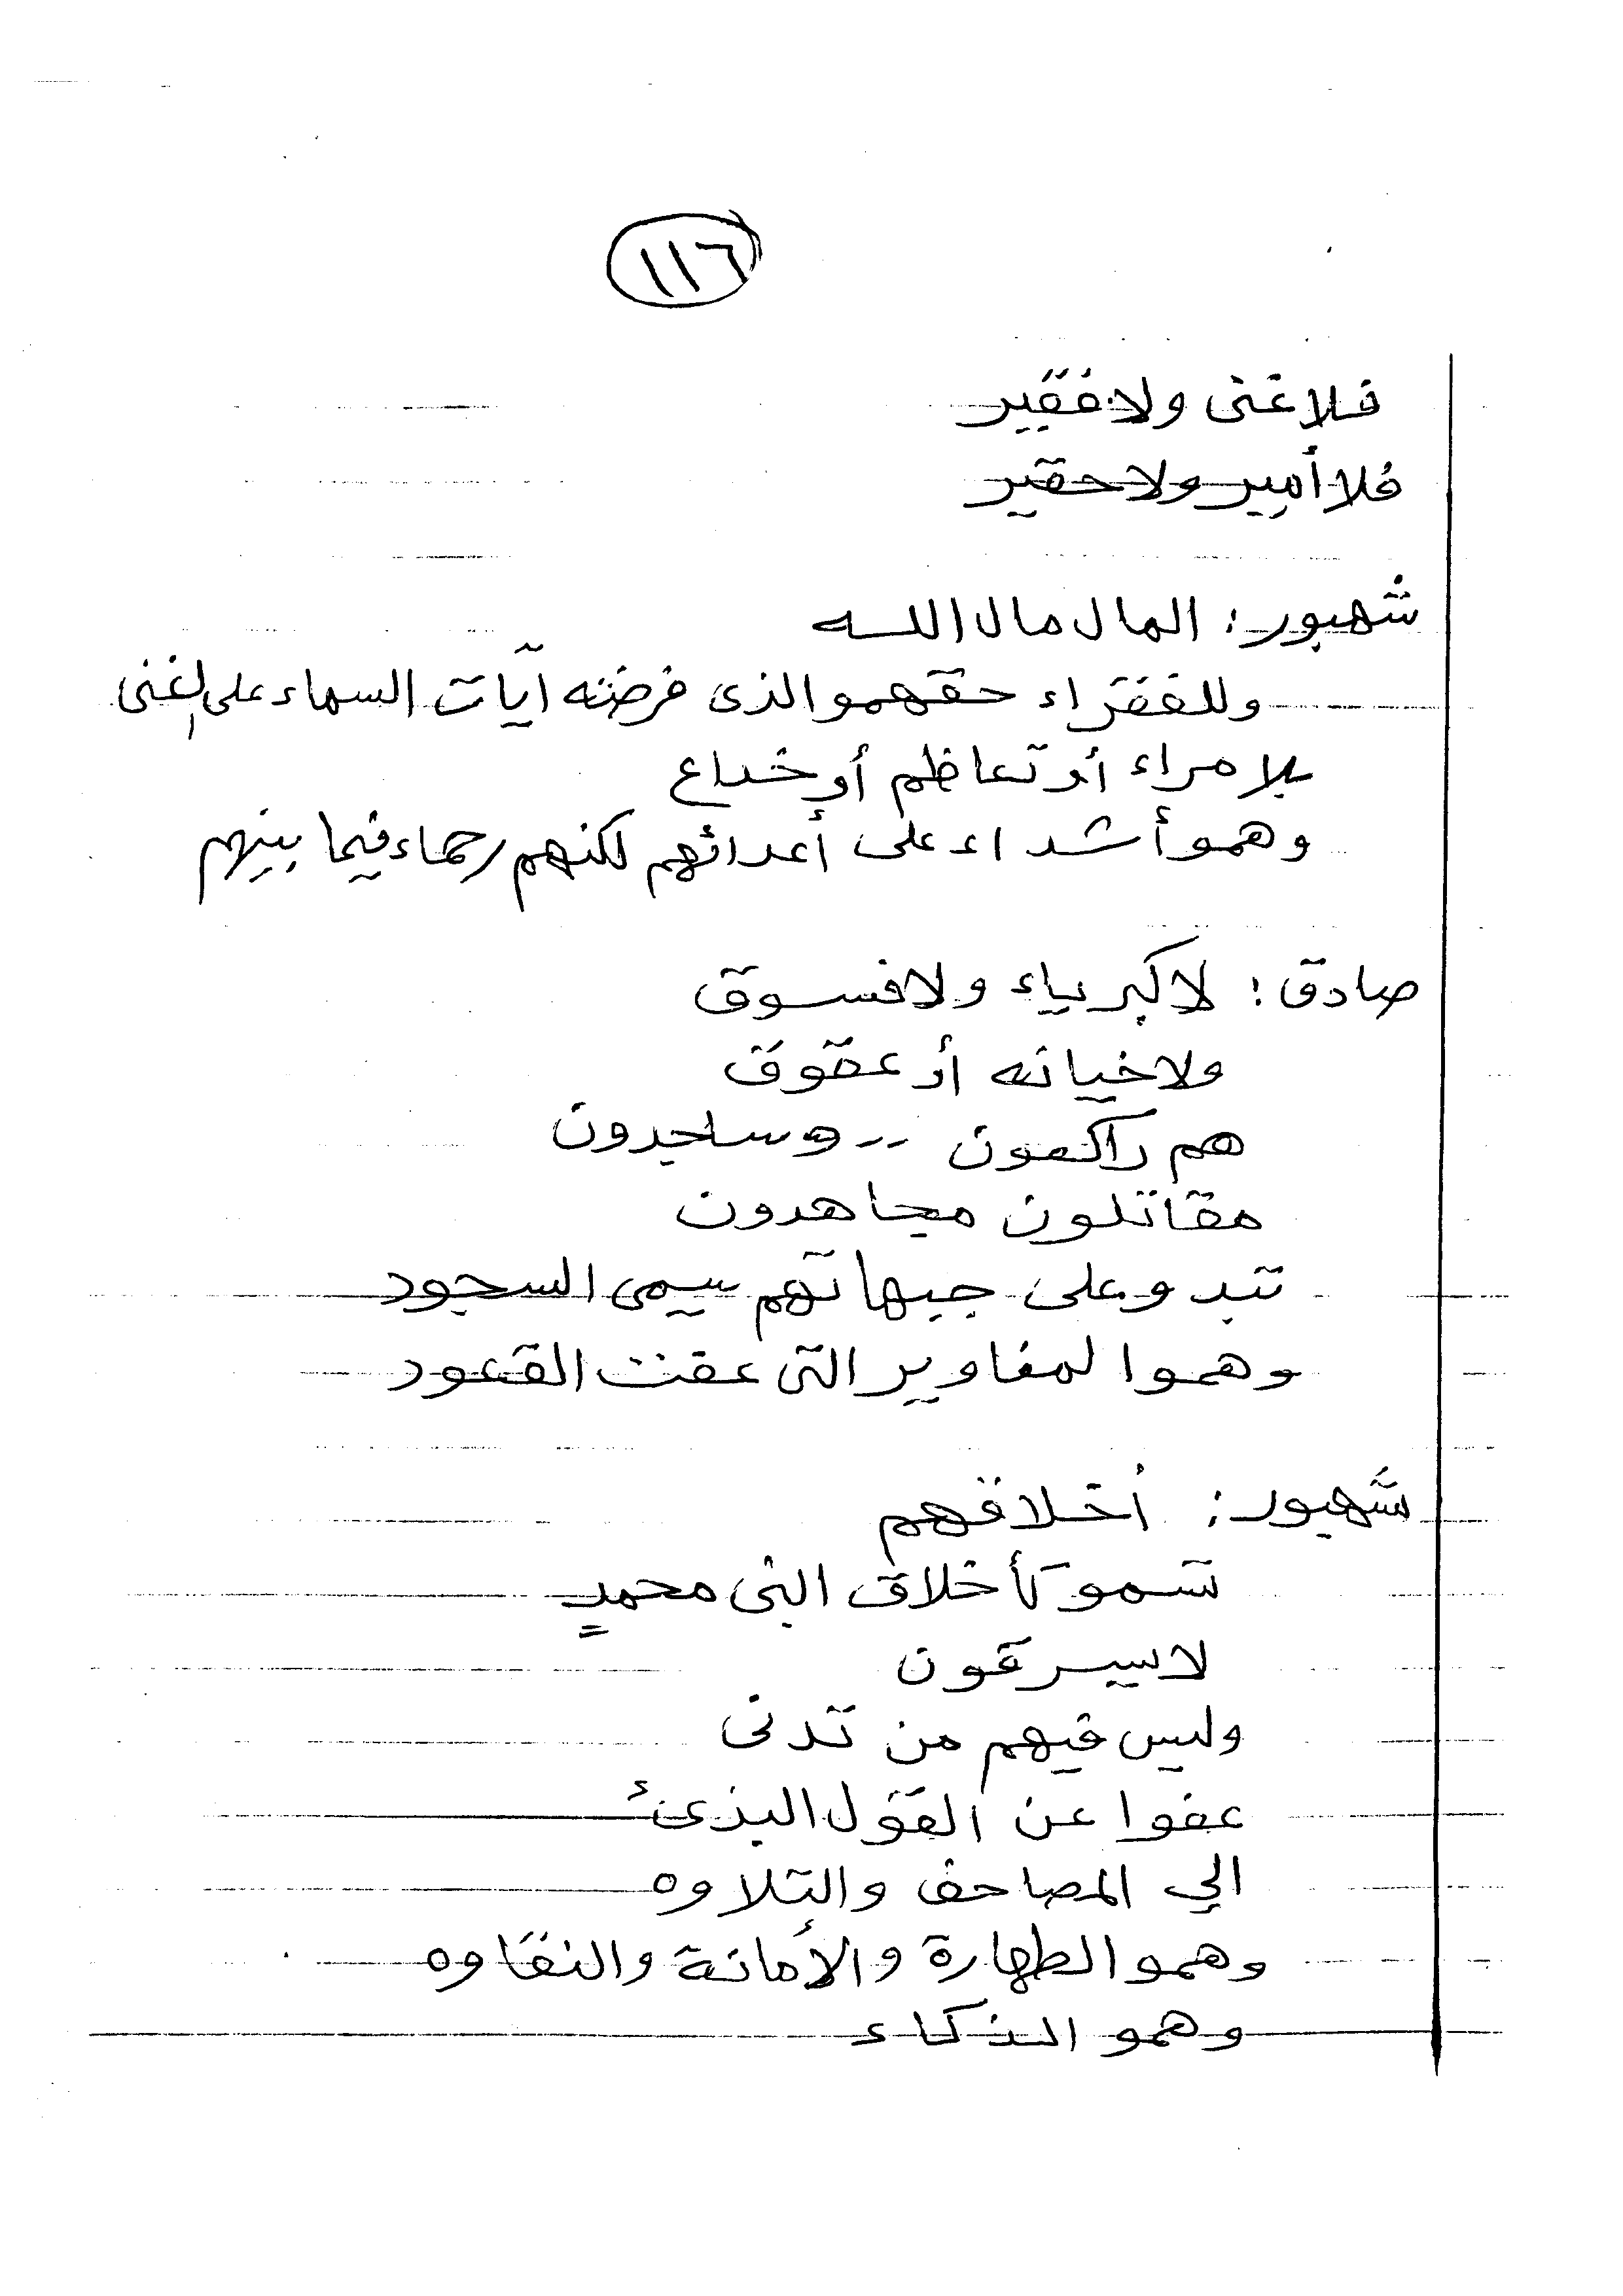 ١١٦
فلا غنى ولا فقير
فلا أمير ولا حقير
شهبور: المال مال الله
وللفقراء حقهمو الذى فرضته آيات السماء على الغنى
بلا مراء أو تعاظم أو خداع
وهمو أشداء على أعدائهم لكنهم رحماء فيما بينهم
صادق: لا كبرياء ولا فسوق
ولا خيانه أو عقوق
هم راكعون -- وساجدون
مقاتلون مجاهدون
تبدو على جبهاتهم سيمى السجود
وهموا لمغاوير التى عقت القعود
شهبور: أخلاقهم
تسمو كأخلاق النبى محمدٍ
لا يسرقون
وليس فيهم من تدنى
عفوا عن القول البذىء
الي المصاحف والتلاوه
وهمو الطهارة والأمانة والنقاوه
وهمو الذكاء